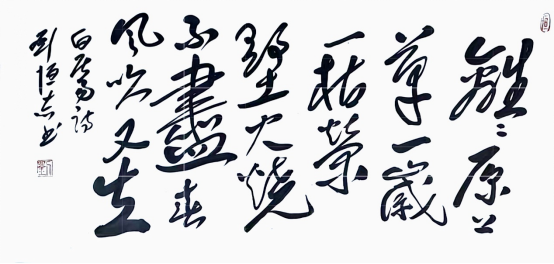 離〻原上
草一歲
一枯榮
野火燒
不盡春
風吹又生
白居易詩
恒志书